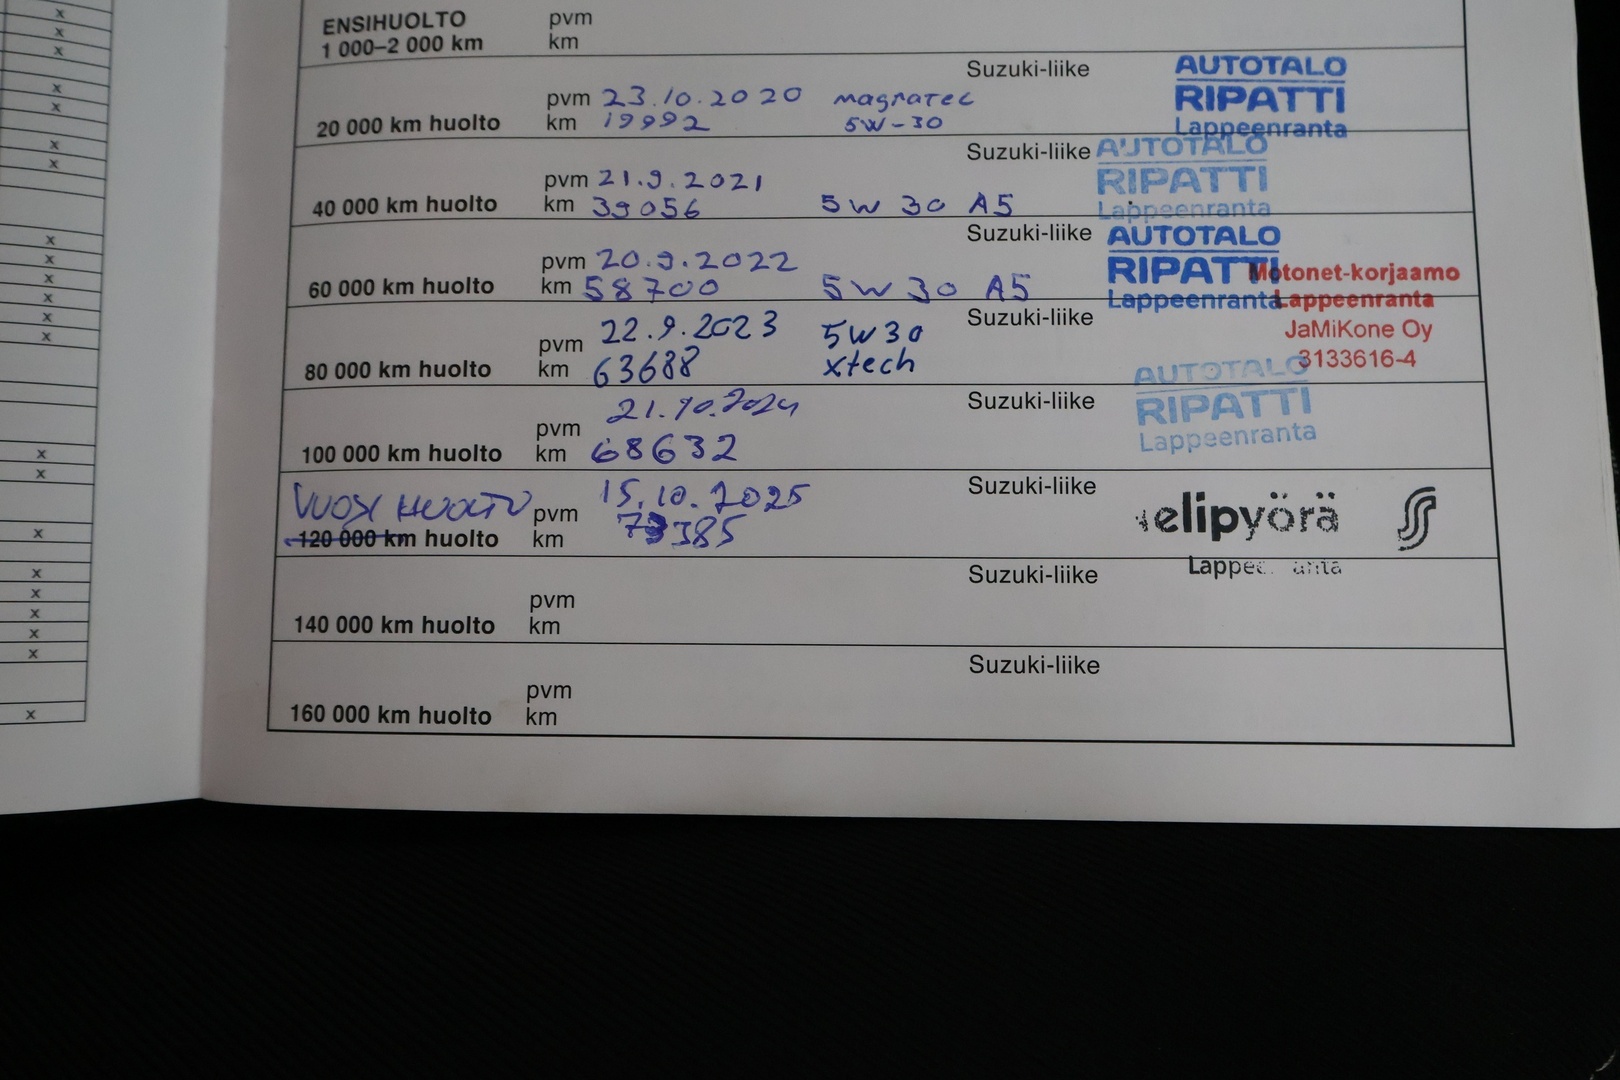 ENSIHUOLTO pvm
1 000–2 000 km km
Suzuki-liike AUTOTALO
pvm 23.10.2020 magnatec RIPATTI
20 000 km huolto km 19992 5W-30 Lappeenranta
Suzuki-liike AUTOTALO
pvm 21.9.2021 RIPATTI
40 000 km huolto km 39056 5W 30 A5 Lappeenranta
Suzuki-liike AUTOTALO
pvm 20.9.2022 RIPATTI Motonet-korjaamo
60 000 km huolto km 58700 5W 30 A5 Lappeenranta Lappeenranta
22.9.2023 5W30 Suzuki-liike JaMiKone Oy
pvm 3133616-4
80 000 km huolto km 63688 xtech AUTOTALO
21.10.2024 Suzuki-liike RIPATTI
pvm Lappeenranta
100 000 km huolto km 68632
VUOSI HUOLTO pvm 15.10.2025 Suzuki-liike elipyörä
120 000 km huolto km 73385
Suzuki-liike
pvm
140 000 km huolto km
Suzuki-liike
pvm
160 000 km huolto km
x
x
x
x
x
x
x
x
x
x
x
x
x
x
x
x
x
x
x
x
x
x